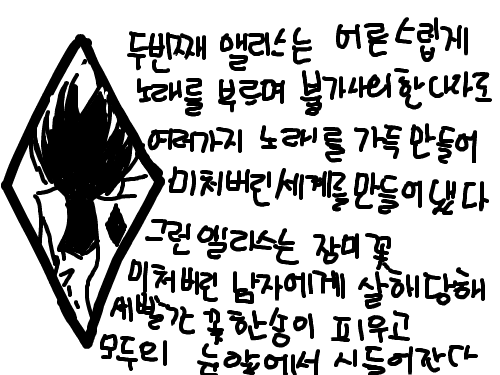 두번째 앨리스는 어른스럽게
노래를 부르며 불가사의한 나라로
여러가지 노래를 가득 만들어
미쳐버린 세계를 만들어 냈다
그런 앨리스는 장미꽃
미쳐버린 남자에게 살해당해
새빨간 꽃 한송이 피우고
모두의 눈앞에서 시들어간다